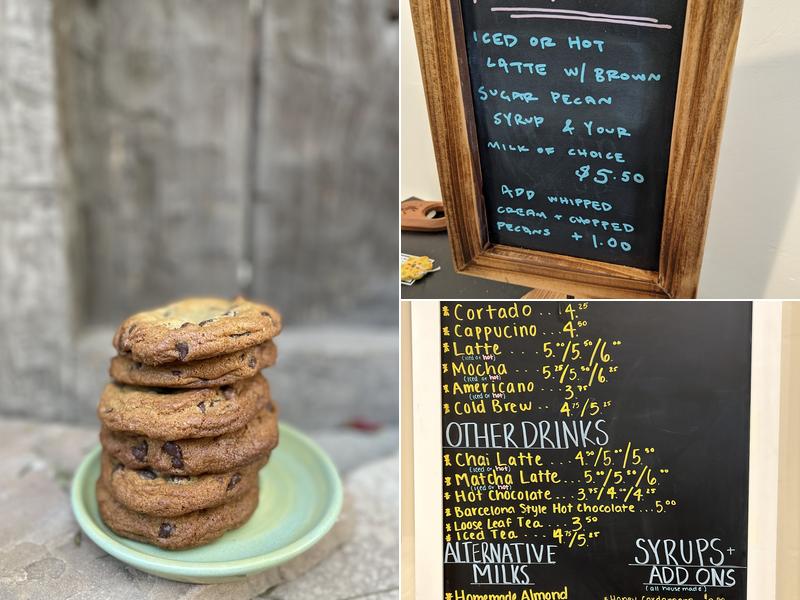 ICED OR HOT
LATTE W/ BROWN
SUGAR PECAN
SYRUP & YOUR
MILK OF CHOICE
$5.50
ADD WHIPPED
CREAM + CHOPPED
PECANS + 1.00
* Cortado... 4.25
* Cappucino... 4.50
* Latte .... 5.00/5.50/6.00
(iced or hot)
* Mocha .... 5.25/5.50/6.25
(iced or hot)
* Americano ... 3.75
(iced or hot)
* Cold Brew... 4.75/5.25
OTHER DRINKS
* Chai Latte.... 4.50/5.00/5.50
(iced or hot)
* Matcha Latte... 5.00/5.50/6.00
(iced or hot)
* Hot Chocolate... 3.75/4.00/4.25
* Barcelona Style Hot Chocolate...5.00
* Loose Leaf Tea... 3.50
* Iced Tea... 4.75/5.25
ALTERNATIVE
MILKS
* Homemade Almond
SYRUPS +
ADD ONS
(all house made)